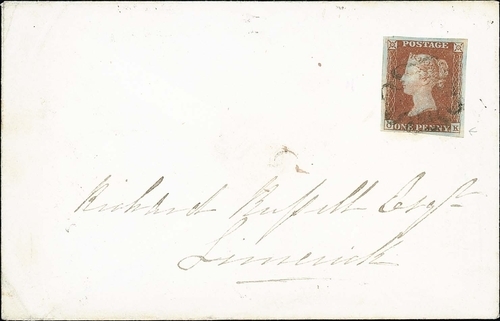 POSTAGE
ONE PENNY
Richard Russell Esqr
Limerick